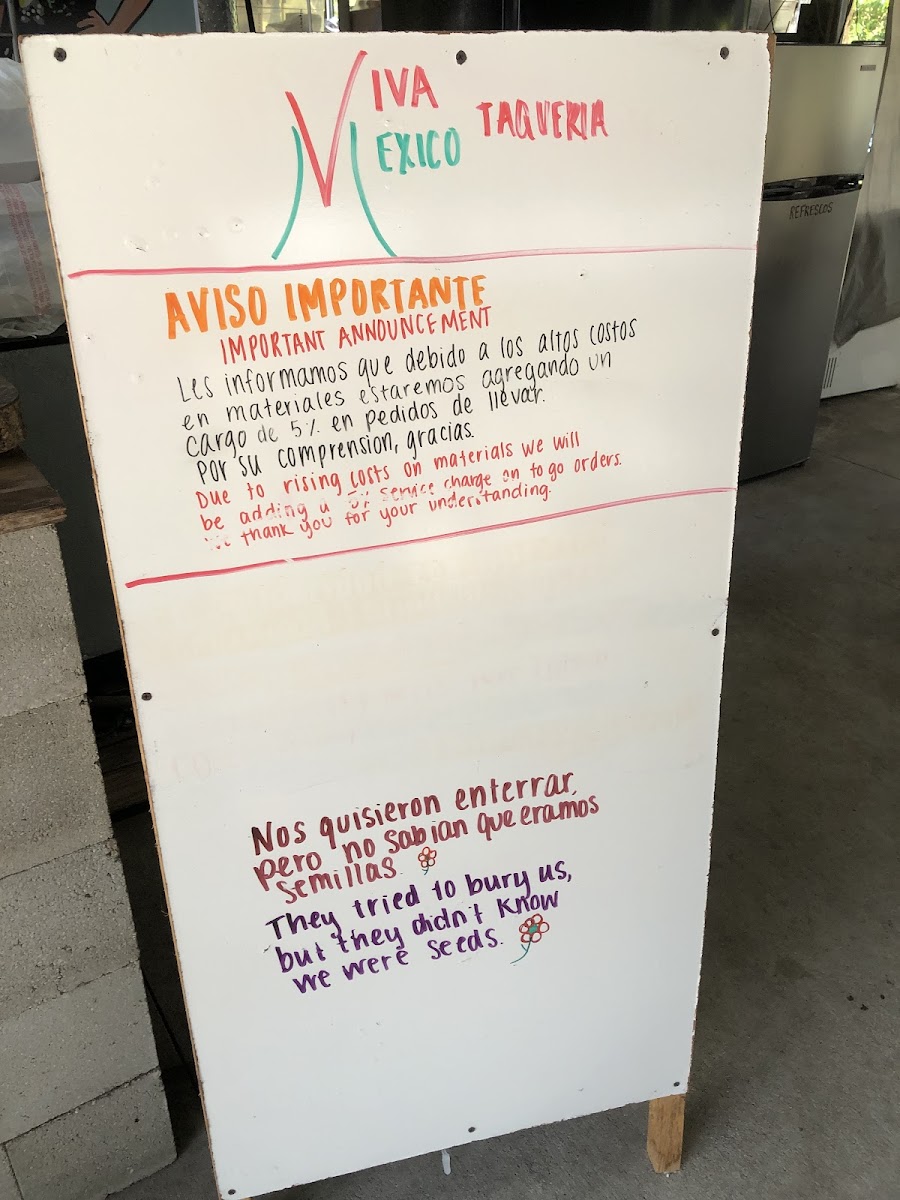 VIVA
MEXICO
TAQUERIA
AVISO IMPORTANTE
IMPORTANT ANNOUNCEMENT
Les informamos que debido a los altos costos
en materiales estaremos agregando un
cargo de 5% en pedidos de llevar.
Por su comprension, gracias.
Due to rising costs on materials we will
be adding a 5% service charge on to go orders.
We thank you for your understanding.
Nos quisieron enterrar,
pero no sabian que eramos
semillas.
They tried to bury us,
but they didn't know
we were seeds.
REFRESCOS